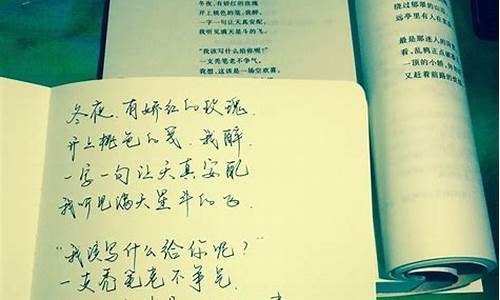 冬夜,有娇红的玫瑰
开上桃色的笺,我醉,
一字一句让天真安配,
我听见满天星斗的飞。
"我该写什么给你呢?"
一支秃笔老不争气,
我想,这该是一场空欢喜。
绕过郁翠的山
远亭里有人在
最是那迷人的
看,乱鸦正点破
一顶的小轿,
又赶着前路的
冬夜,有娇红的玫瑰,
开上桃色的笺,我醉,
一字一句让天真安配
我听见满天星斗的飞
"我该写什么给你呢?"
一支秃笔老不争气,